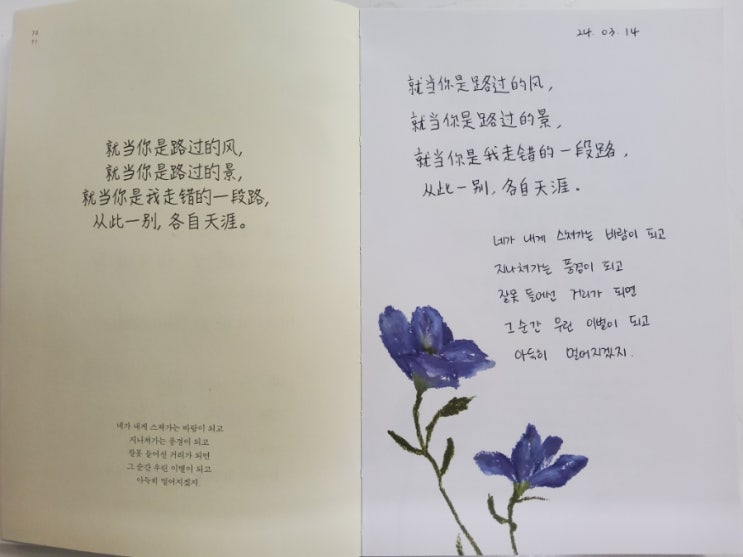 70
71
就当你是路过的风,
就当你是路过的景,
就当你是我走错的一段路,
从此一别, 各自天涯。
네가 내게 스쳐가는 바람이 되고
지나쳐가는 풍경이 되고
잘못 들어선 거리가 되면
그 순간 우린 이별이 되고
아득히 멀어지겠지.
24. 03. 14
就当你是路过的风,
就当你是路过的景,
就当你是我走错的一段路,
从此一别, 各自天涯。
네가 내게 스쳐가는 바람이 되고
지나쳐가는 풍경이 되고
잘못 들어선 거리가 되면
그 순간 우린 이별이 되고
아득히 멀어지겠지.